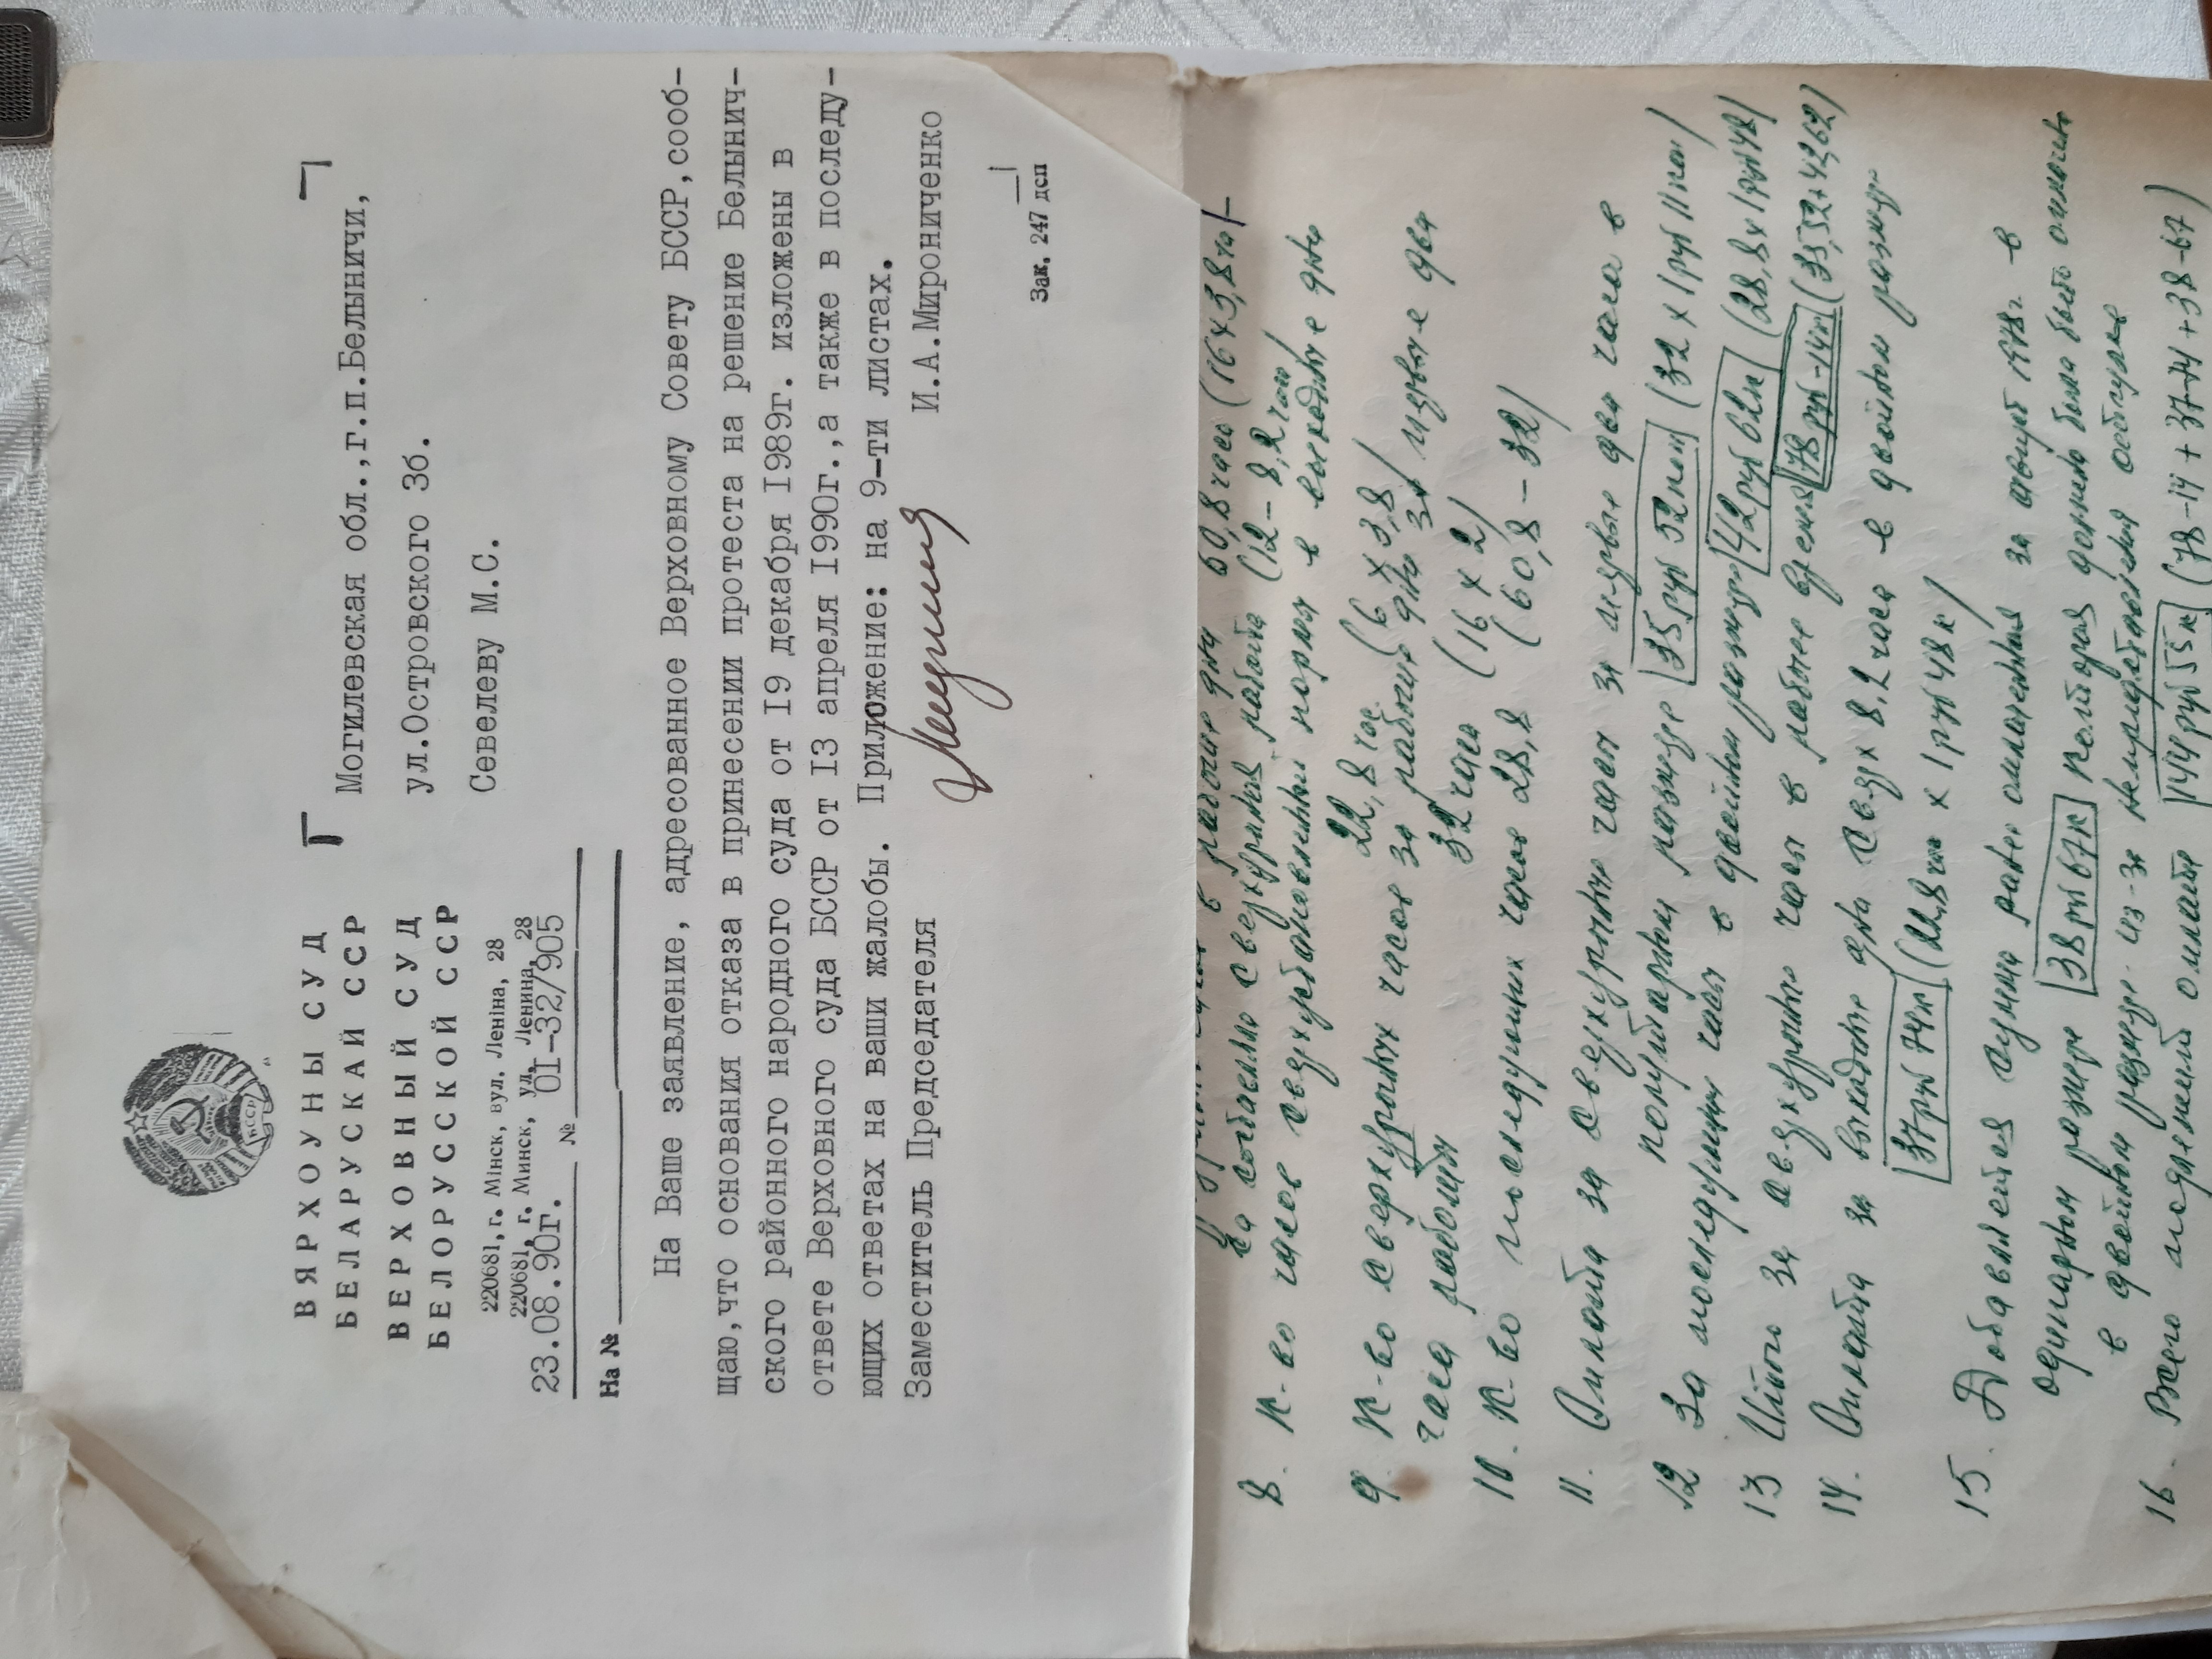 БССР
ВЯРХОУНЫ СУД
БЕЛАРУСКАЙ ССР
ВЕРХОВНЫЙ СУД
БЕЛОРУССКОЙ ССР
220681, г. Мінск, вул. Леніна, 28
220681, г. Минск, ул. Ленина, 28
23.08.90г. № 01-32/905
На №
Могилевская обл.,г.п.Белыничи,
ул.Островского 3б.
Севелеву М.С.
На Ваше заявление, адресованное Верховному Совету БССР,сооб-
щаю,что основания отказа в принесении протеста на решение Белынич-
ского районного народного суда от 19 декабря 1989г. изложены в
ответе Верховного суда БССР от 13 апреля 1990г.,а также в последу-
ющих ответах на ваши жалобы. Приложение: на 9-ти листах.
Заместитель Председателя И.А.Мирониченко
Зак. 247 дсп
в рабочие дни 60,8 часа (16х3,8 ча/
сверхурочная работа (12-8,2 часа
8. К-во часов сверхустановленной нормы в выходные дни
22,8 час. (6 х 3,8
9. К-во сверхурочных часов за рабочие дни за первые два
часа работы 32 часа (16 х 2/
10. К-во последующих часов 28,8 (60,8 - 32/
11. Оплата за сверхурочные часы за первые два часа в
полуторном размере 35 руб 52 коп (32 х 1 руб 11 коп/
12 За последующие часы в двойном размере 42 руб 62 к (28,8 х 1 руб 48/
13 Итого за сверхурочные часы в рабочее время 78 руб-14 к (35,52+42,62/
14. Оплата за выходные дни сверх 8,2 часа в двойном размере
37 руб 74 к (22,8 час х 1 руб 48 к/
15. Добавляется сумма ранее оплаченная за август 1978г. в
одинарном размере 38 руб 67 к которая должна была быть оплачена
в двойном размере из-за
16. Всего оплате 144 руб 55 к (78-14 + 37-74 + 38-67)